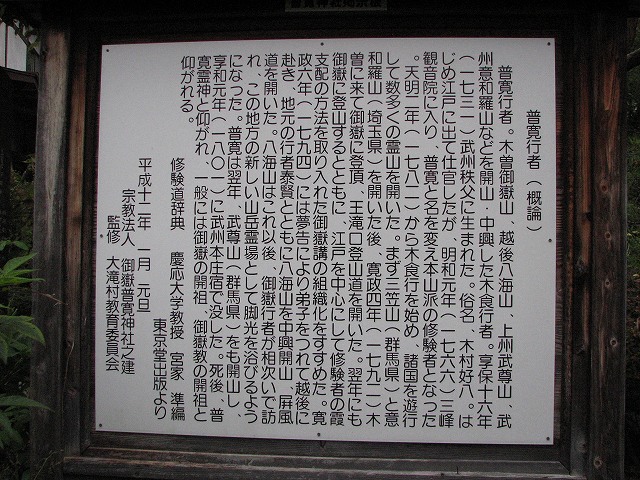 普寛行者（概論）
普寛行者。木曽御嶽山、越後八海山、上州武尊山、武
州意和羅山などを開山・中興した木食行者。享保十六年
（一七三一）武州秩父に生まれた。俗名、木村好八。は
じめ江戸に出て仕官したが、明和元年（一七六六）三峰
観音院に入り、普寛と名を変え本山派の修験者となった
。天明二年（一七八二）から木食行を始め、諸国を遊行
して数多くの霊山を開いた。まず三笠山（群馬県）と意
和羅山（埼玉県）を開いた後、寛政四年（一七九二）木
曽に来て御嶽に登頂、王滝口登山道を開いた。翌年にも
御嶽に登山するとともに、江戸を中心にして修験者の霞
支配の方法を取り入れた御嶽講の組織化をすすめた。寛
政六年（一七九四）には夢告により弟子をつれて越後に
赴き、地元の行者泰賢とともに八海山を中興開山、屏風
道を開いた。八海山はこれ以後、御嶽行者が相次いで訪
れ、この地方の新しい山岳霊場として脚光を浴びるよう
になった。普寛は翌年、武尊山（群馬県）をも開山し、
享和元年（一八〇一）に武州本庄宿で没した。死後、普
寛霊神と仰がれ、一般には御嶽の開祖、御嶽教の開祖と
仰がれる。
修験道辞典　慶応大学教授　宮家　準編
東京堂出版より
平成十二年　一月　元旦
宗教法人　御嶽普寛神社之建
監修　大滝村教育委員会